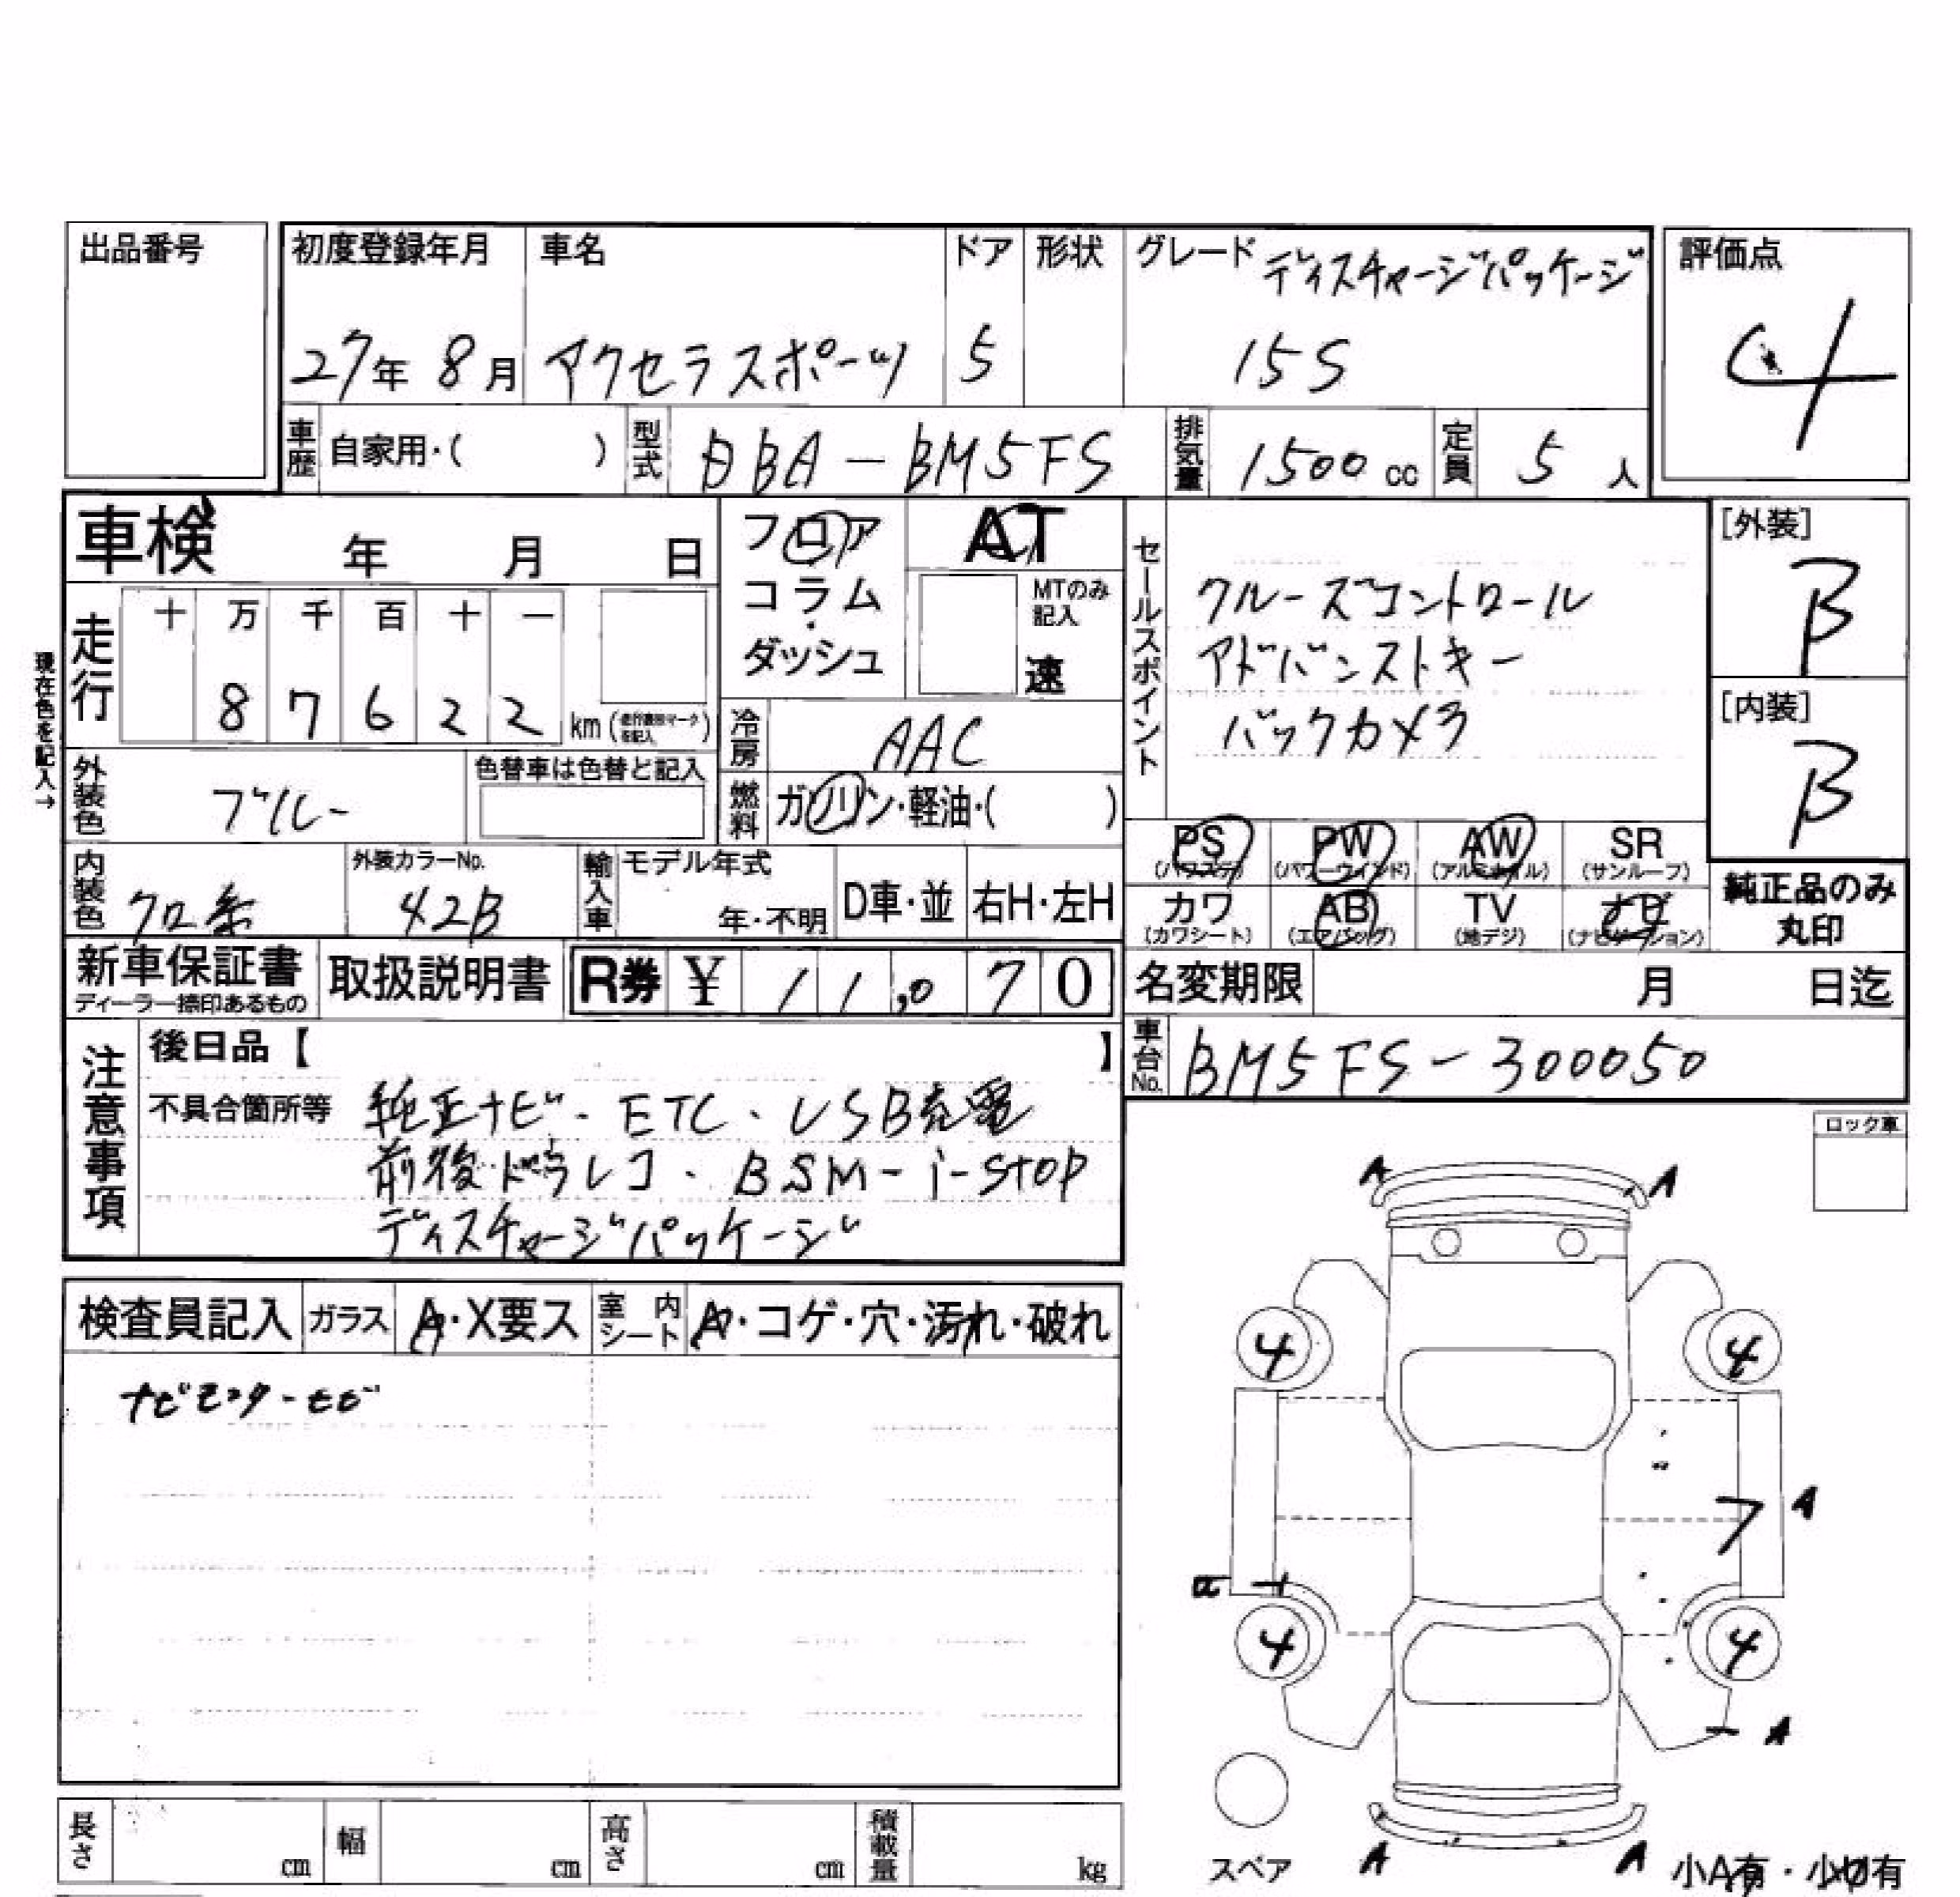 出品番号
初度登録年月 車名 ドア 形状 グレード ディスチャージパッケージ
27年 8月 アクセラスポーツ 5 15S
評価点
4
車歴 自家用・( ) 型式 DBA-BM5FS 排気量 1500cc 定員 5人
車検 年 月 日
フロア
コラム・
ダッシュ
AT
MTのみ
記入
速
走行 十 万 千 百 十 一
8 7 6 2 2 km
現在色を記入→
冷房 AAC
外装色 ブルー 色替車は色替ど記入
燃料 ガソリン・軽油・( )
内装色 クロ系 外装カラーNo. 42B 輸入車 モデル年式 年・不明 D車・並 右H・左H
セールスポイント
クルーズコントロール
アドバンストキー
バックカメラ
[外装]
B
[内装]
B
PS PW AW SR
(パワステ) (パワーウインド) (アルミホイル) (サンルーフ)
カワ AB TV ナビ
(カワシート) (エアバッグ) (地デジ) (ナビゲーション)
純正品のみ
丸印
新車保証書 取扱説明書 R券 ¥ 11,070
ディーラー捺印あるもの
名変期限 月 日迄
車台No. BM5FS-300050
注意事項
後日品【 】
不具合箇所等 純正ナビ・ETC・USB充電
前後ドラレコ・BSM-i-stop
ディスチャージパッケージ
ロック車
検査員記入 ガラス A・X要ス 室内シート A・コゲ・穴・汚れ・破れ
A A
4 4
A
4 4
A
A A
スペア
小A有・小U有
長さ cm 幅 cm 高さ cm 積載量 kg